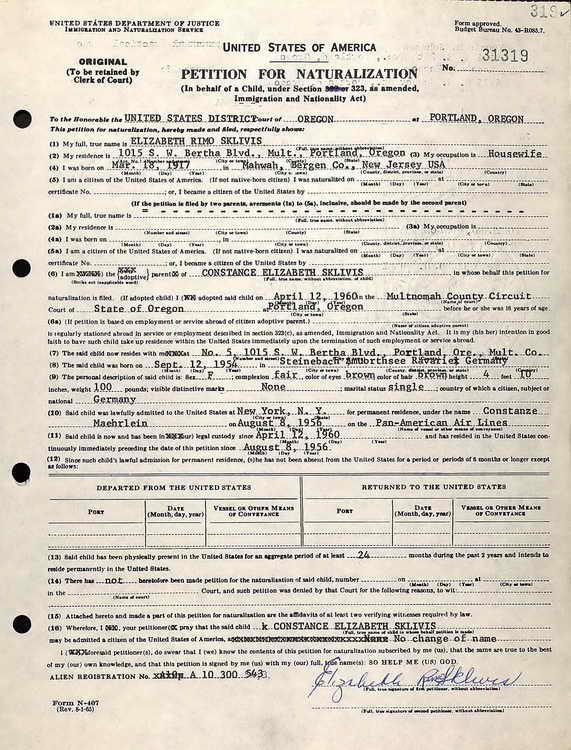 319
UNITED STATES DEPARTMENT OF JUSTICE
IMMIGRATION AND NATURALIZATION SERVICE
Form approved.
Budget Bureau No. 43-R085.7.
ORIGINAL
(To be retained by
Clerk of Court)
UNITED STATES OF AMERICA
PETITION FOR NATURALIZATION
No. 31319
(In behalf of a Child, under Section 323, as amended,
Immigration and Nationality Act)
To the Honorable the UNITED STATES DISTRICT Court of OREGON at PORTLAND, OREGON
This petition for naturalization, hereby made and filed, respectfully shows:
(1) My full, true name is ELIZABETH RIMO SKLIVIS
(Full, true name, without abbreviation)
(2) My residence is 1015 S. W. Bertha Blvd., Mult., Portland, Oregon (3) My occupation is Housewife
(4) I was born on Mar. 18, 1917 in Mahwah, Bergen Co., New Jersey USA
(Month) (Day) (Year) (City or town) (County, district, province, or state) (Country)
(5) I am a citizen of the United States of America. (If not native-born citizen) I was naturalized on at
(Month) (Day) (Year) (City or town) (State)
certificate No. ; or, I became a citizen of the United States by
(If the petition is filed by two parents, averments (1a) to (5a), inclusive, should be made by the second parent)
(1a) My full, true name is
(Full, true name, without abbreviation)
(2a) My residence is (3a) My occupation is
(Number and street) (City or town) (County) (State)
(4a) I was born on , in
(Month) (Day) (Year) (City or town) (County, district, province, or state) (Country)
(5a) I am a citizen of the United States of America. (If not native-born citizen) I was naturalized on at
(Month) (Day) (Year) (City or town) (State)
certificate No. ; or, I became a citizen of the United States by
(6) I am the (adoptive) parent of CONSTANCE ELIZABETH SKLIVIS in whose behalf this petition for
(Strike out inapplicable word) (Full, true name, without abbreviation, of child)
naturalization is filed. (If adopted child) I adopted said child on April 12, 1960 in the Multnomah County Circuit
Court of State of Oregon at Portland, Oregon before he or she was 16 years of age
(6a) (If petition is based on employment or service abroad of citizen adoptive parent.)
(Name of citizen adoptive parent)
is regularly stationed abroad in service or employment described in section 323(c), as amended, Immigration and Nationality Act. It is my (his) her) intention in good
faith to have such child take up residence within the United States immediately upon the termination of such employment or service abroad.
(7) The said child now resides with me at No. 5, 1015 S. W. Bertha Blvd., Portland, Ore., Mult. Co.
(8) The said child was born on Sept. 12, 1954 in Steinebach Germany
(9) The personal description of said child is: Sex F; complexion fair, color of eyes brown color of hair brown height 4 feet 10
inches, weight 100 pounds; visible distinctive marks None; marital status single; country of which a citizen, subject or
national Germany
(10) Said child was lawfully admitted to the United States at New York, N. Y. for permanent residence, under the name Constanze
Maehrlein on August 8, 1956 on the Pan-American Air Lines
(Month) (Day) (Year) (Name of vessel or other means of conveyance)
(11) Said child is now and has been in (our) legal custody since April 12, 1960 and has resided in the United States con-
(Month) (Day) (Year)
tinuously immediately preceding the date of this petition since August 8, 1956.
(Month) (Day) (Year)
(12) Since such child's lawful admission for permanent residence, (s)he has not been absent from the United States for a period or periods of 6 months or longer except
as follows:
DEPARTED FROM THE UNITED STATES RETURNED TO THE UNITED STATES
PORT DATE (Month, day, year) VESSEL OR OTHER MEANS OF CONVEYANCE PORT DATE (Month, day, year) VESSEL OR OTHER MEANS OF CONVEYANCE
(13) Said child has been physically present in the United States for an aggregate period of at least 24 months during the past 2 years and intends to
reside permanently in the United States.
(14) There has not heretofore been made petition for the naturalization of said child, number on at
(Month) (Day) (Year) (City or town)
in the Court, and such petition was denied by that Court for the following reasons, to wit:
(Name of court)
(15) Attached hereto and made a part of this petition for naturalization are the affidavits of at least two verifying witnesses required by law.
(16) Wherefore, I, your petitioner pray that the said child CONSTANCE ELIZABETH SKLIVIS
(Full, true name of child in whose behalf petition is made)
may be admitted a citizen of the United States of America, No change of name
I aforesaid petitioner(s), do swear that I (we) know the contents of this petition for naturalization subscribed by me (us), that the same are true to the best
of my (our) own knowledge, and that this petition is signed by me (us) with my (our) full, true name(s): SO HELP ME (US) GOD.
ALIEN REGISTRATION NO. A 10 300 543
Elizabeth R. Sklivis
(Full, true signature of first petitioner, without abbreviation)
Form N-407
(Rev. 8-1-65)
(Full, true signature of second petitioner, without abbreviation)